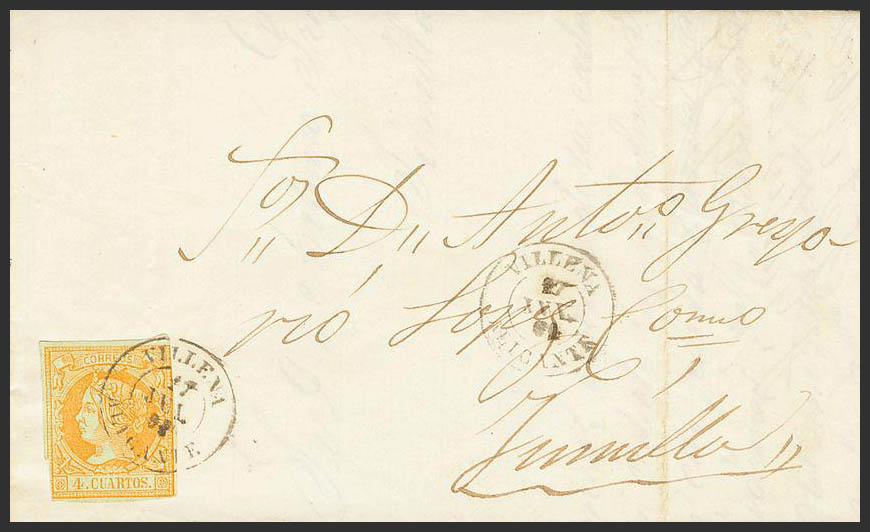 Sor D. Anto. Grego-
rio Lopez
Jumilla
VILLENA
27
JUL
ALICANTE
CORREOS
4. CUARTOS.
VILLENA
27
JUL
ALICANTE